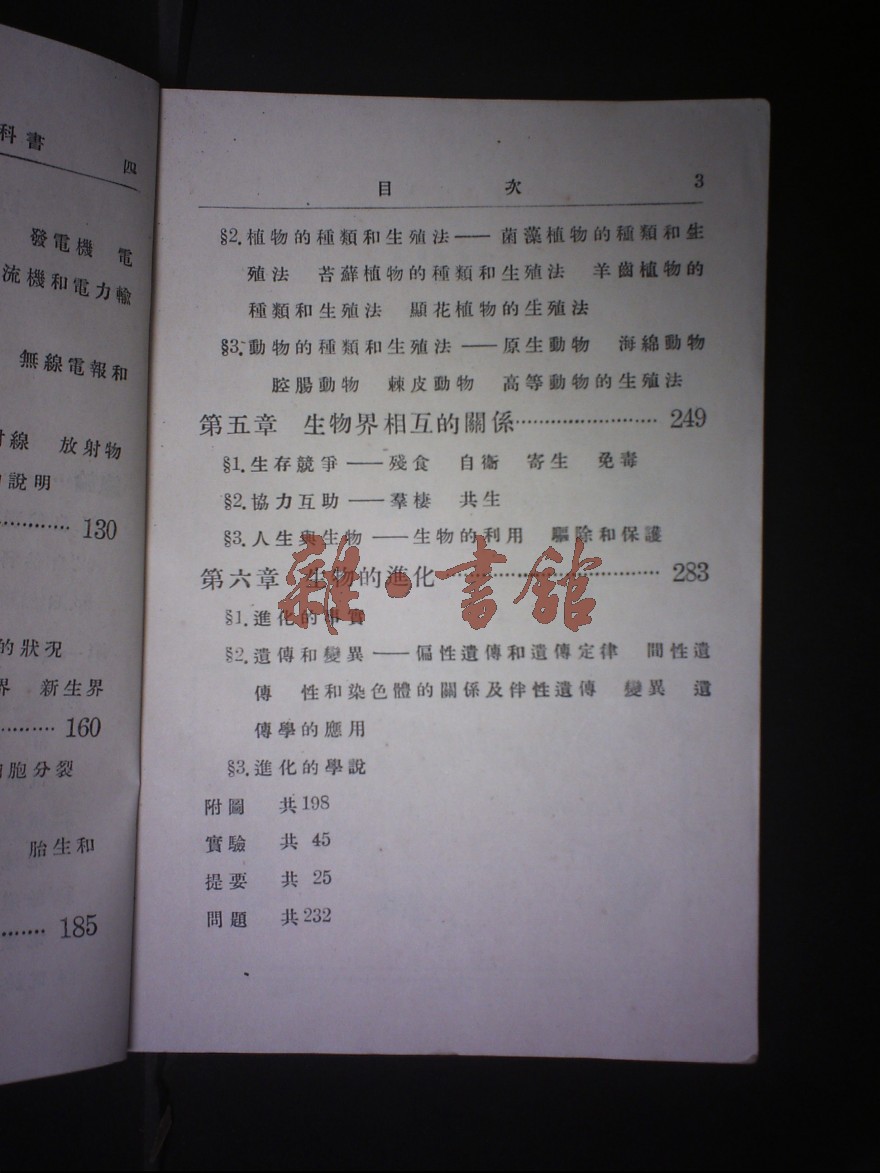 科書 四
發電機 電
流機和電力輸
無線電報和
線 放射物
說明
130
的狀況
界 新生界
160
胞分裂
胎生和
185
目 次 3
§2.植物的種類和生殖法——菌藻植物的種類和生
殖法 苔蘚植物的種類和生殖法 羊齒植物的
種類和生殖法 顯花植物的生殖法
§3.動物的種類和生殖法——原生動物 海綿動物
腔腸動物 棘皮動物 高等動物的生殖法
第五章 生物界相互的關係……………………249
§1.生存競爭——殘食 自衞 寄生 免毒
§2.協力互助——羣棲 共生
§3.人生與生物——生物的利用 驅除和保護
第六章 生物的進化……………………………283
雜·書館
§1.進化的事實
§2.遺傳和變異——偏性遺傳和遺傳定律 間性遺
傳 性和染色體的關係及伴性遺傳 變異 遺
傳學的應用
§3.進化的學說
附圖 共198
實驗 共 45
提要 共 25
問題 共232